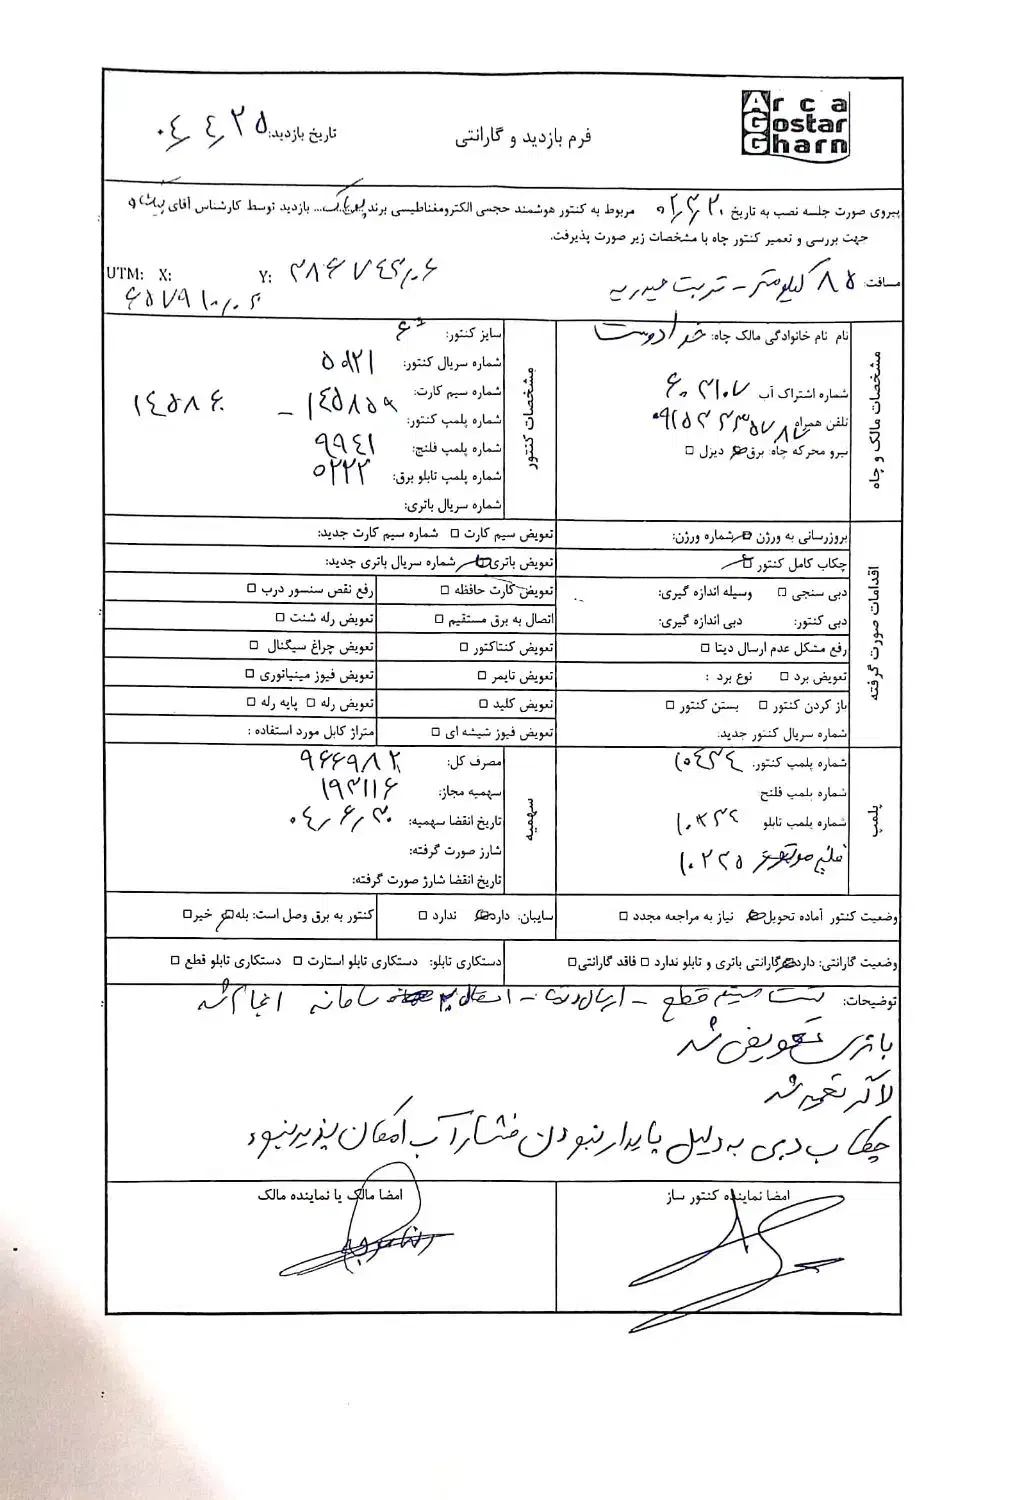 Arca
Gostar
Gharn
فرم بازدید و گارانتی
تاریخ بازدید: ۰۴/۴/۲۵
پیروی صورت جلسه نصب به تاریخ مربوط به کنتور هوشمند حجمی الکترومغناطیسی برند ... بازدید توسط کارشناس آقای
جهت بررسی و تعمیر کنتور چاه با مشخصات زیر صورت پذیرفت.
مسافت: ۸۵ کیلومتر - تربت حیدریه
UTM: X: Y:
مشخصات مالک و چاه
نام نام خانوادگی مالک چاه: خدادوست
شماره اشتراک آب
تلفن همراه
نیرو محرکه چاه: برق دیزل
مشخصات کنتور
سایز کنتور: ۶"
شماره سریال کنتور: ۵۹۲۱
شماره سیم کارت:
شماره پلمپ کنتور: ۱۴۵۸۵۹ - ۱۴۵۸۶۰
شماره پلمپ فلنج: ۹۹۴۱
شماره پلمپ تابلو برق: ۵۲۲۲
شماره سریال باتری:
اقدامات صورت گرفته
بروزرسانی به ورژن شماره ورژن:
تعویض سیم کارت شماره سیم کارت جدید:
چکاب کامل کنتور
تعویض باتری شماره سریال باتری جدید:
دبی سنجی وسیله اندازه گیری:
تعویض کارت حافظه
رفع نقص سنسور درب
دبی کنتور: دبی اندازه گیری:
اتصال به برق مستقیم
تعویض رله شنت
رفع مشکل عدم ارسال دیتا
تعویض کنتاکتور
تعویض چراغ سیگنال
تعویض برد نوع برد :
تعویض تایمر
تعویض فیوز مینیاتوری
باز کردن کنتور بستن کنتور
تعویض کلید
تعویض رله پایه رله
شماره سریال کنتور جدید:
تعویض فیوز شیشه ای
متراژ کابل مورد استفاده :
پلمپ
شماره پلمپ کنتور:
شماره پلمپ فلنج
شماره پلمپ تابلو
سهمیه
مصرف کل: ۹۶۶۹۸۲
سهمیه مجاز: ۱۹۳۱۱۶
تاریخ انقضا سهمیه: ۰۴/۶/۳۰
شارژ صورت گرفته:
تاریخ انقضا شارژ صورت گرفته:
وضعیت کنتور آماده تحویل نیاز به مراجعه مجدد
سایبان: دارد ندارد
کنتور به برق وصل است: بله خیر
وضعیت گارانتی: دارد گارانتی باتری و تابلو ندارد فاقد گارانتی
دستکاری تابلو: دستکاری تابلو استارت دستکاری تابلو قطع
توضیحات: تست سیستم قطع - ارسال دیتا - سامانه انجام شد
باتری تعویض شد
لاگر تعمیر شد
چکاب دبی به دلیل پایدار نبودن فشار آب امکان پذیر نبود
امضا نماینده کنتور ساز
امضا مالک یا نماینده مالک